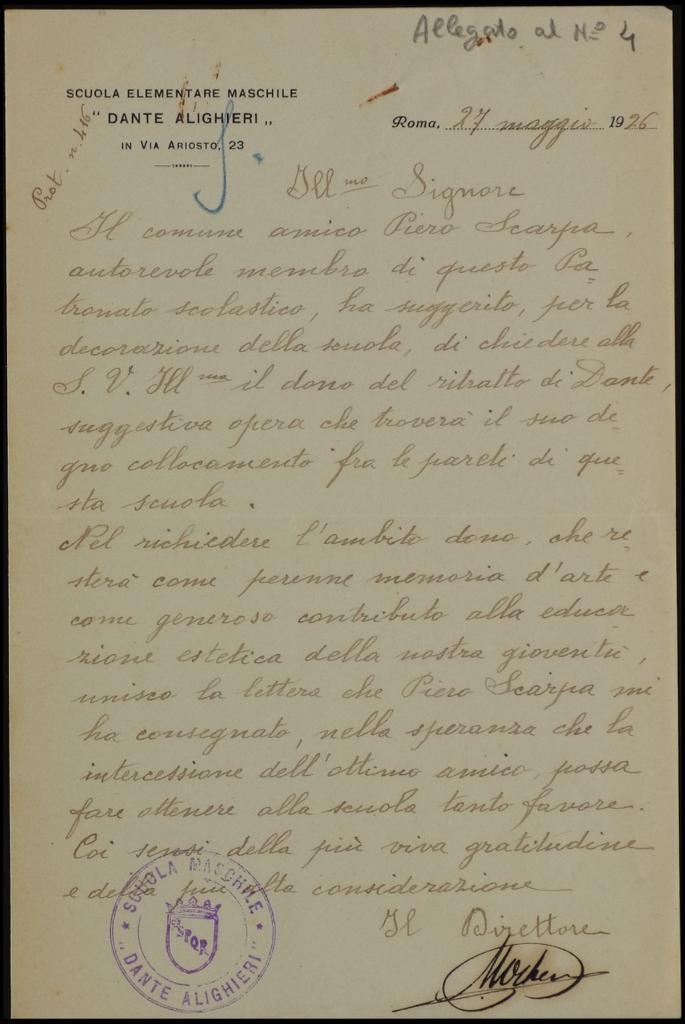 Allegato al Nº 4
SCUOLA ELEMENTARE MASCHILE
" DANTE ALIGHIERI „
IN VIA ARIOSTO, 23
Roma, 27 maggio 1926
Prot. n. 416
Illmo Signore
Il comune amico Piero Scarpa,
autorevole membro di questo Pa=
tronato scolastico, ha suggerito, per la
decorazione della scuola, di chiedere alla
S. V. Illma il dono del ritratto di Dante,
suggestiva opera che troverà il suo de=
gno collocamento fra le pareti di que=
sta scuola.
Nel richiedere l'ambito dono, che re=
sterà come perenne memoria d'arte e
come generoso contributo alla educa=
zione estetica della nostra gioventù,
unisco la lettera che Piero Scarpa mi
ha consegnato, nella speranza che la
intercessione dell'ottimo amico, possa
fare ottenere alla scuola tanto favore.
Coi sensi della più viva gratitudine
e della più alta considerazione
Il Direttore
SCUOLA MASCHILE
SPQR
"DANTE ALIGHIERI"